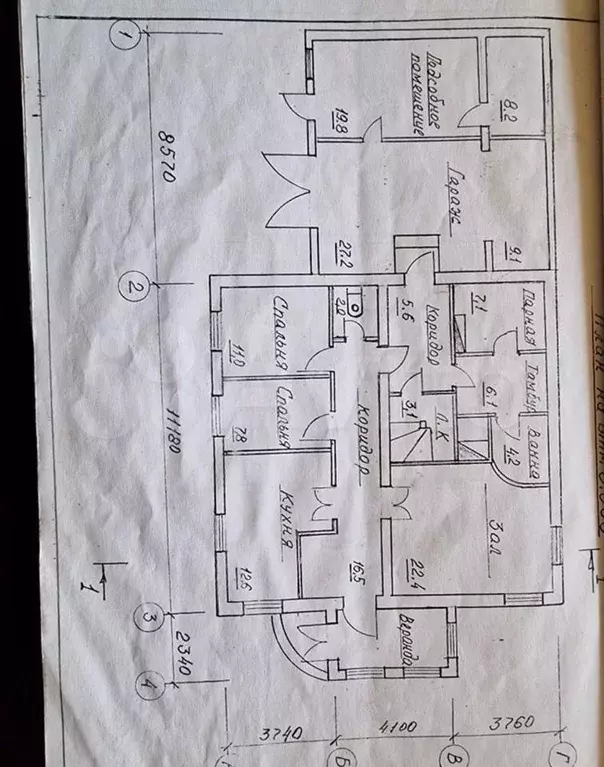 1
8570
2
11180
3
2340
4
Подсобное
помещение
19.8
8.2
Гараж
27.2
9.1
Спальня
11,0
2.0
Коридор
5.6
Парная
7.1
Тамбур
6.1
Ванна
4.2
Л.К
3.1
Спальня
7.8
Коридор
16.5
Кухня
12.6
Зал
22.4
Веранда
1
1
3740
4100
3760
Б
В
Г
План на отм.